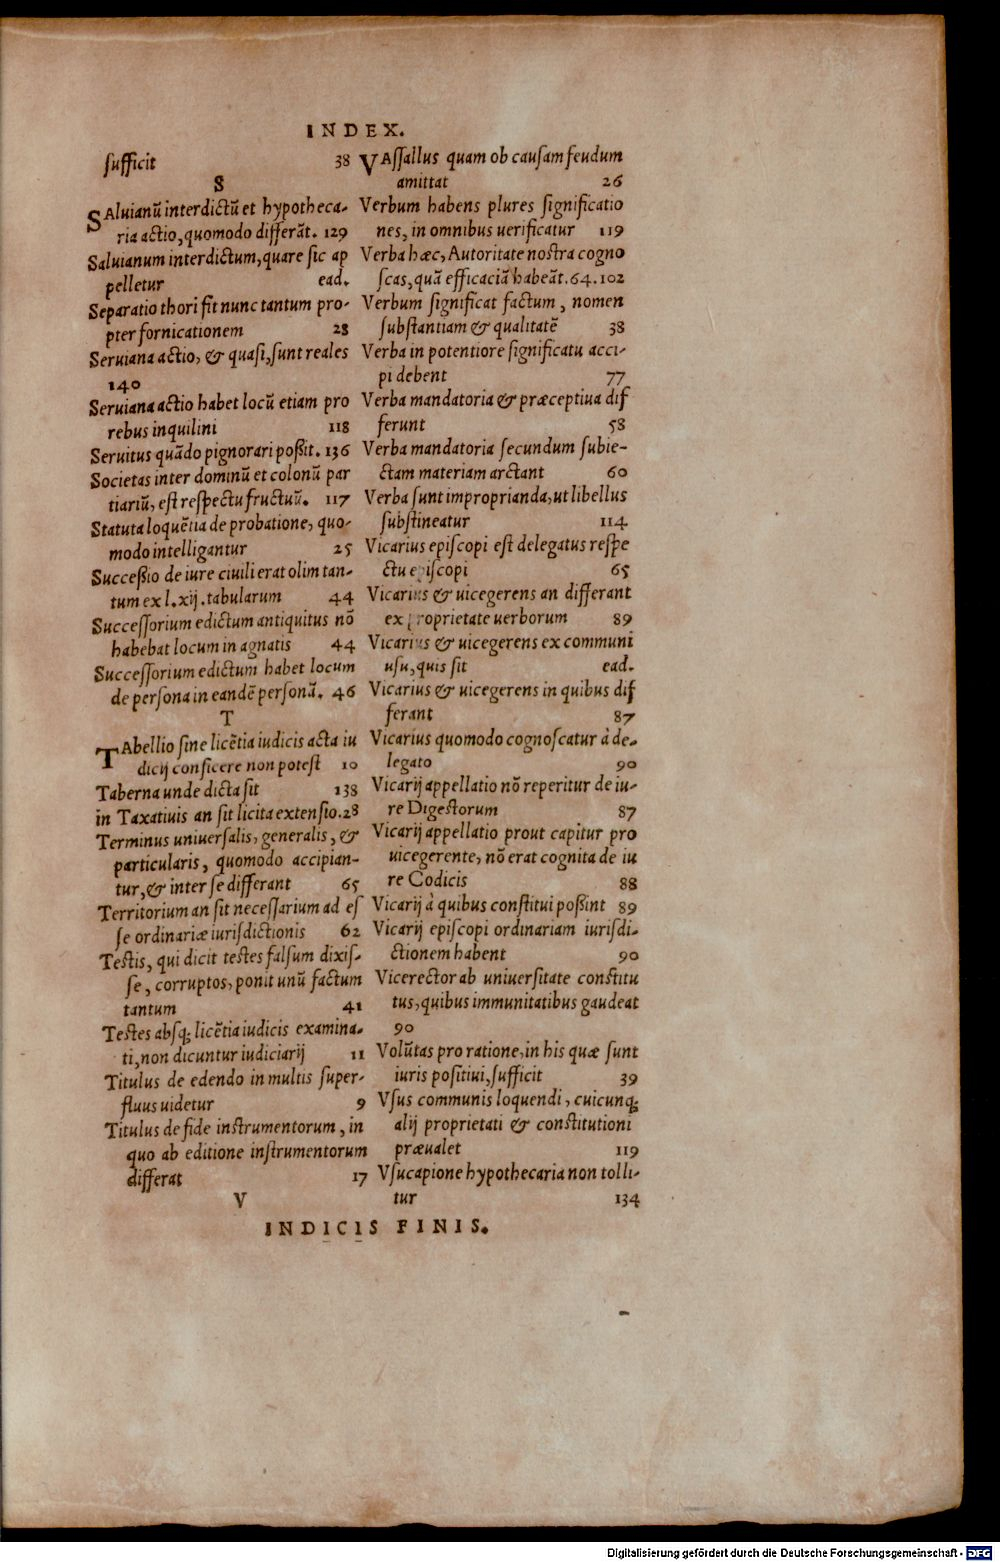 INDEX.
ſufficit 38
S
SAluianũ interdictũ et hypotheca-
ria actio, quomodo differãt. 129
Saluianum interdictum, quare ſic ap
pelletur ead.
Separatio thori fit nunc tantum pro-
pter fornicationem 28
Seruiana actio, & quaſi, ſunt reales
140
Seruiana actio habet locũ etiam pro
rebus inquilini 118
Seruitus quãdo pignorari poßit. 136
Societas inter dominũ et colonũ par
tiariũ, eſt reſpectu fructuũ. 117
Statuta loquẽtia de probatione, quo-
modo intelligantur 25
Succeßio de iure ciuili erat olim tan-
tum ex l. xij. tabularum 44
Succeſſorium edictum antiquitus nõ
habebat locum in agnatis 44
Succeſſorium edictum habet locum
de perſona in eandẽ perſonã. 46
T
TAbellio ſine licẽtia iudicis acta iu
dicij conficere non poteſt 10
Taberna unde dicta ſit 138
in Taxatiuis an ſit licita extenſio. 28
Terminus uniuerſalis, generalis, &
particularis, quomodo accipian-
tur, & inter ſe differant 65
Territorium an ſit neceſſarium ad eſ
ſe ordinariæ iuriſdictionis 62
Teſtis, qui dicit teſtes falſum dixiſ-
ſe, corruptos, ponit unũ factum
tantum 41
Teſtes abſq; licẽtia iudicis examina-
ti, non dicuntur iudiciarij 11
Titulus de edendo in multis ſuper-
fluus uidetur 9
Titulus de fide inſtrumentorum, in
quo ab editione inſtrumentorum
differat 17
V
VAſſallus quam ob cauſam feudum
amittat 26
Verbum habens plures ſignificatio
nes, in omnibus uerificatur 119
Verba hæc, Autoritate noſtra cogno
ſcas, quã efficaciã habeãt. 64. 102
Verbum ſignificat factum, nomen
ſubſtantiam & qualitatẽ 38
Verba in potentiore ſignificatu acci-
pi debent 77
Verba mandatoria & præceptiua dif
ferunt 58
Verba mandatoria ſecundum ſubie-
ctam materiam arctant 60
Verba ſunt improprianda, ut libellus
ſubſtineatur 114
Vicarius epiſcopi eſt delegatus reſpe
ctu epiſcopi 65
Vicarius & uicegerens an differant
ex proprietate uerborum 89
Vicarius & uicegerens ex communi
uſu, quis ſit ead.
Vicarius & uicegerens in quibus dif
ferant 87
Vicarius quomodo cognoſcatur à de-
legato 90
Vicarij appellatio nõ reperitur de iu-
re Digeſtorum 87
Vicarij appellatio prout capitur pro
uicegerente, nõ erat cognita de iu
re Codicis 88
Vicarij à quibus conſtitui poßint 89
Vicarij epiſcopi ordinariam iuriſdi-
ctionem habent 90
Vicerector ab uniuerſitate conſtitu
tus, quibus immunitatibus gaudeat
90
Volũtas pro ratione, in his quæ ſunt
iuris poſitiui, ſufficit 39
Vſus communis loquendi, cuicunq;
alij proprietati & conſtitutioni
præualet 119
Vſucapione hypothecaria non tolli-
tur 134
INDICIS FINIS.
Digitalisierung gefördert durch die Deutsche Forschungsgemeinschaft - DFG